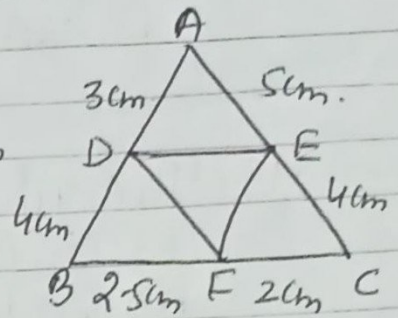 A
3cm 5cm.
D E
4cm 4cm
B 2.5cm F 2cm C